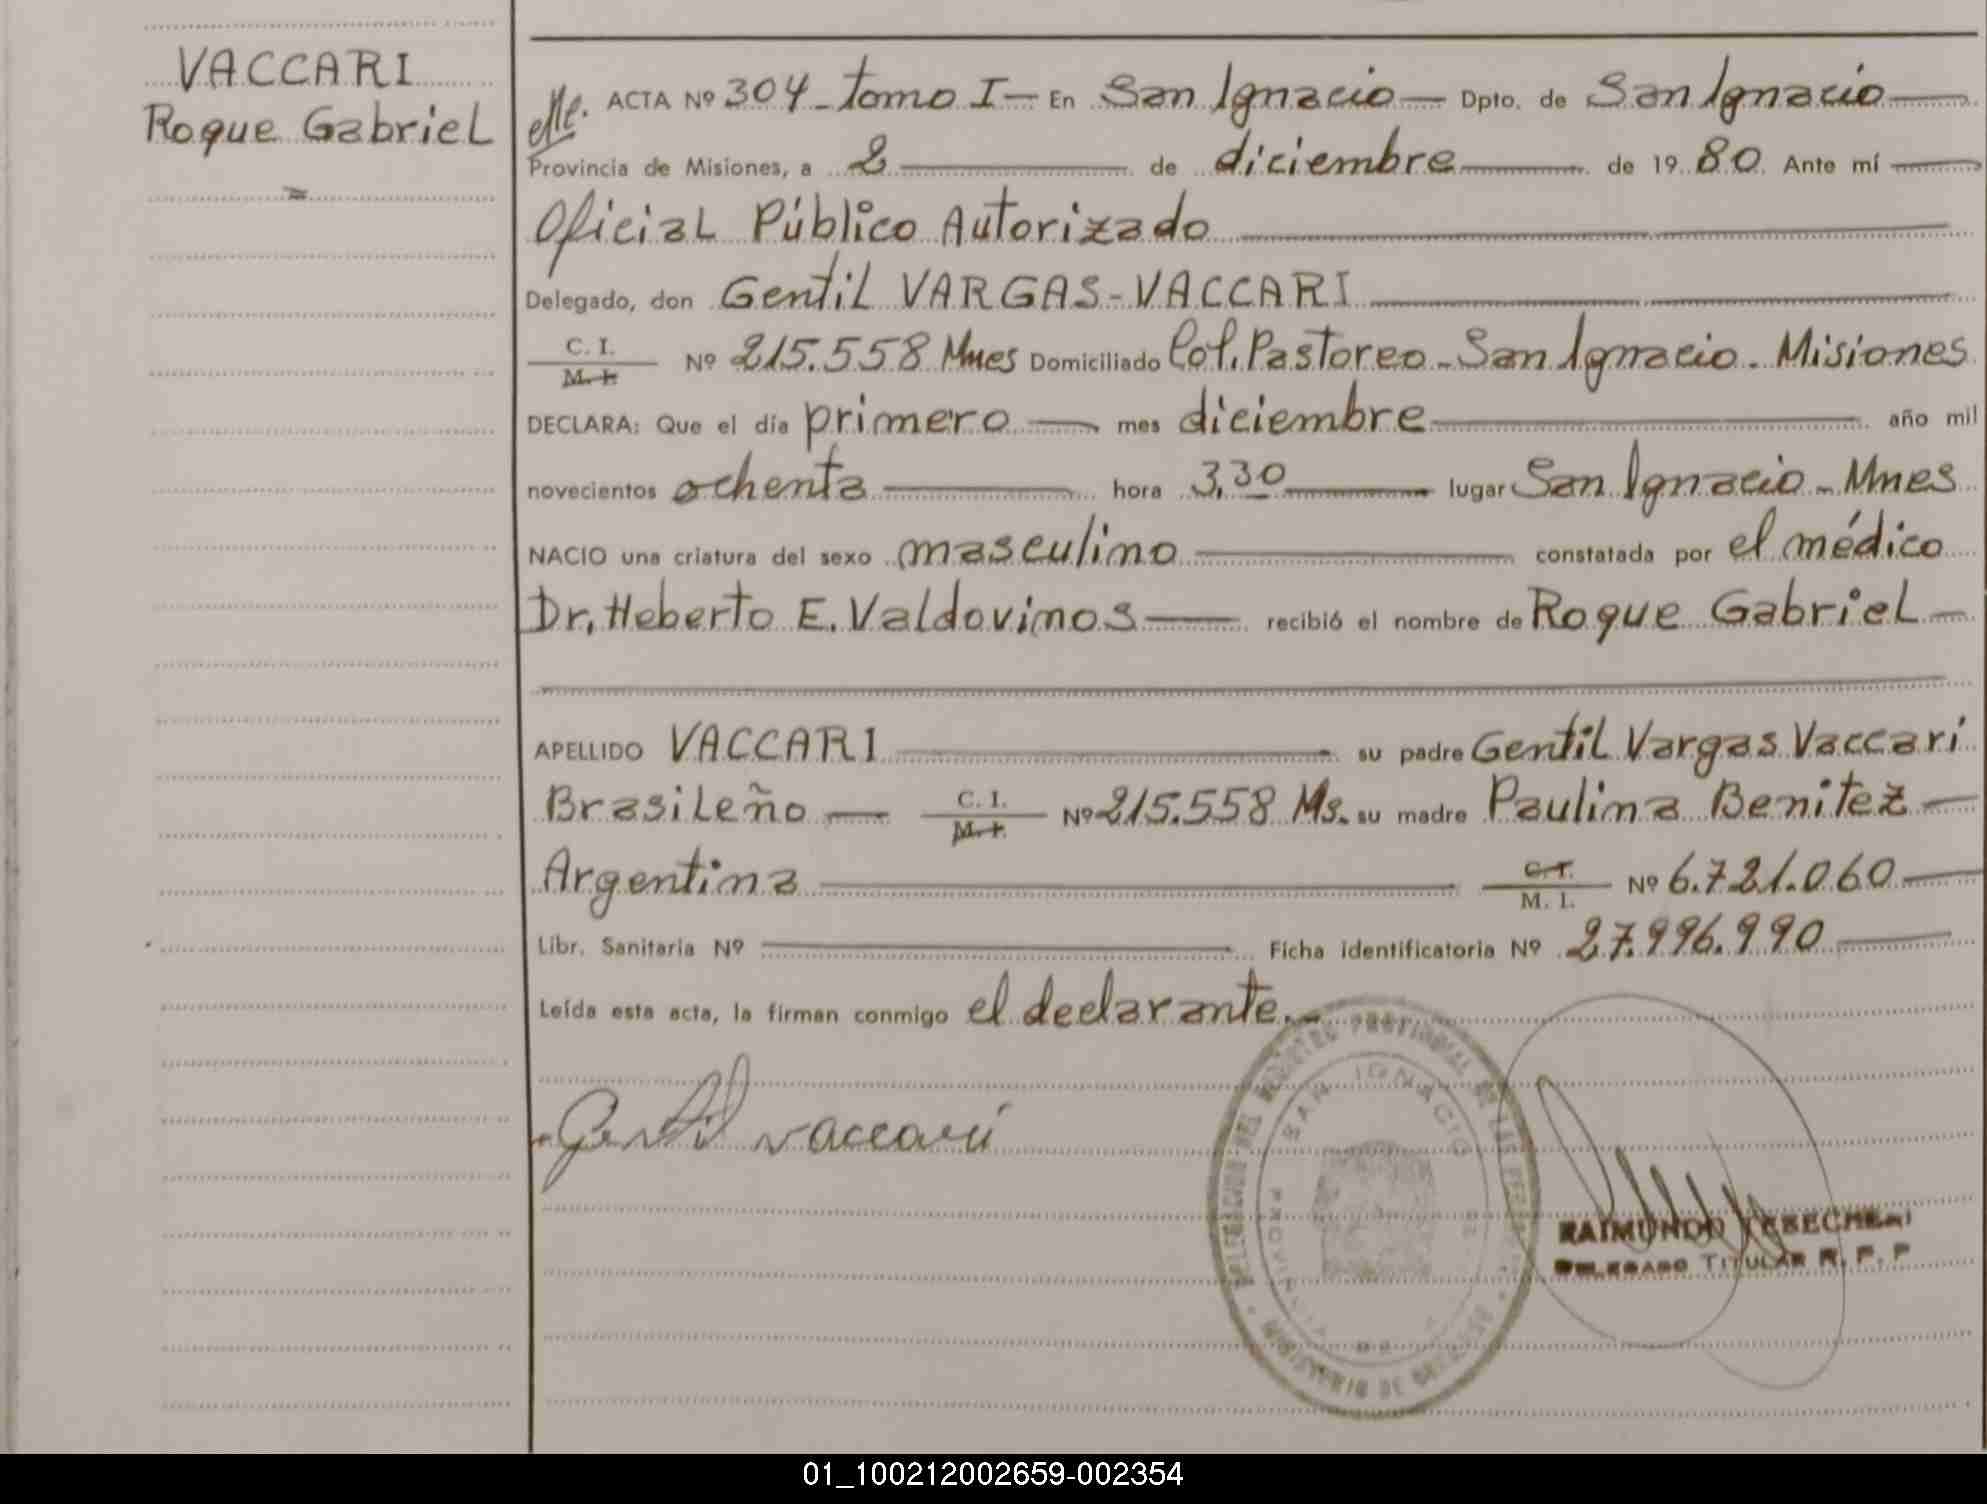 VACCARI
Roque Gabriel
ACTA Nº 304 - tomo I - En San Ignacio - Dpto. de San Ignacio
Provincia de Misiones, a 2 de diciembre de 1980. Ante mí
Oficial Público Autorizado
Delegado, don Gentil VARGAS-VACCARI
C. I.
M. I. Nº 215.558 Mnes Domiciliado Col. Pastoreo - San Ignacio - Misiones
DECLARA: Que el día primero mes diciembre año mil
novecientos ochenta hora 3,30 lugar San Ignacio - Mnes
NACIO una criatura del sexo masculino constatada por el médico
Dr. Heberto E. Valdovinos recibió el nombre de Roque Gabriel
APELLIDO VACCARI su padre Gentil Vargas Vaccari
Brasileño C. I.
M. I. Nº 215.558 Ms. su madre Paulina Benitez
Argentina C. I.
M. I. Nº 6.721.060
Libr. Sanitaria Nº Ficha identificatoria Nº 27.996.990
Leída esta acta, la firman conmigo el declarante.-
Gentil vaccari
SAN IGNACIO
MINISTERIO DE
RAIMUNDO
DELEGADO TITULAR R. P. P
01_100212002659-002354